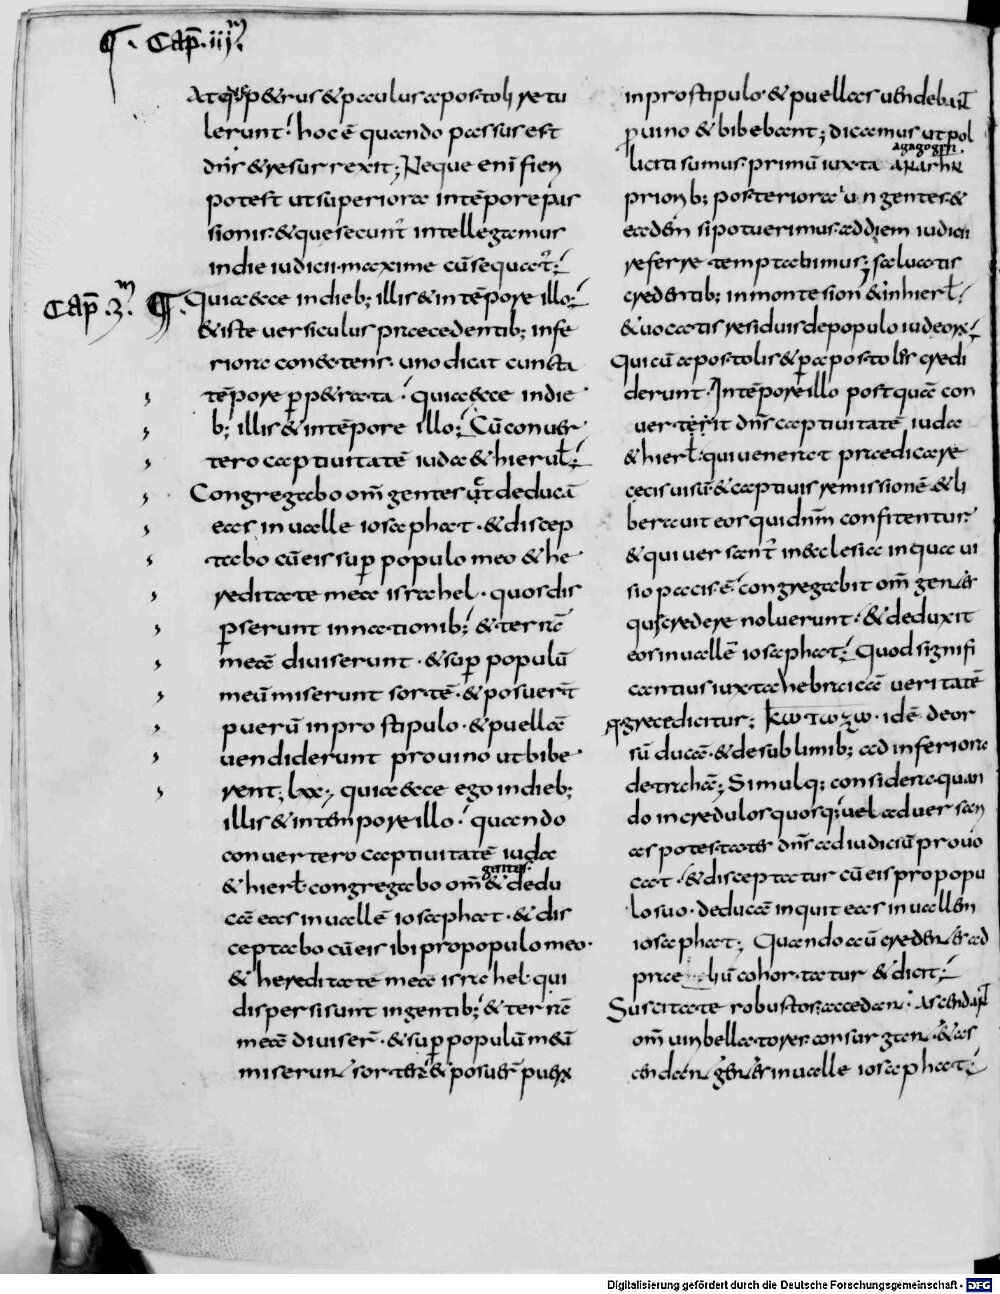 ¶. Cap̄. iijm.
Atq; petrus & paulus apostoli retu
lerunt; hoc ē quando passus est
dn̄s & resurrexit; Neque enī fieri
potest ut superiora in tēpore pas
sionis & que secunt̄ intellegamus
in die iudicii maxime cū sequat̄;
Cap̄. 3m. ¶. Quia ecce in dieb; illis & in tēpore illo;
& iste versiculus praecedentib; infe
riora consotens uno dicat cuncta
tēpore perpetrata; quia ecce in die
b; illis & in tēpore illo; Cū conuer
tero captiuitatē iuda & hierl̄;
Congregabo om̄ gentes & deducā
eas in ualle iosaphat & discep
tabo cū eis sup populo meo & he
reditate mea israhel. quos dis
perserunt in nationib; & terrā
meā diuiserunt. & sup populū
meū miserunt sortē. & posuert̄
puerū in prostipulo. & puellā
uendiderunt pro uino ut bibe
rent; lxx; quia ecce ego in dieb;
illis & in tempore illo; quando
conuertero captiuitatē iuda
& hierl̄. congregabo om̄ gentes & dedu
cā eas in uallē iosaphat. & dis
ceptabo cū eis ibi pro populo meo.
& hereditate mea israhel. qui
dispersi sunt in gentib; & terrā
meā diuiser̄. & sup populū meū
miserun sortes & posuer̄ puerx
in prostipulo. & puellas uendebant
p uino & bibebant; dicamus ut pol
liciti sumus. primū iuxta
agagogen.
priorib; posteriora iungentes &
eadem si potuerimus ad diem iudicii
referre temptabimus; saluatis
credentib; in monte sion & in hierl̄;
& uocatis residuis de populo iudeorx;
Qui cū apostolis & p apostolos credi
derunt. In tēpore illo postquā con
uerterit dn̄s captiuitatē iuda
& hierl̄. qui uenerat praedicare
cecis uisū & captiuis remissionē. & li
berauit eos qui dnm̄ confitentur.
& qui uersant̄ in ecclesia in qua ui
sio pacis ē. congregabit om̄ gentes
quę credere noluerunt. & deduxit
eos in uallē iosaphat; Quod signifi
cantius iuxta hebraicā ueritatē
grece dicitur; κωτωζω. idē deor
sū ducā. & de sublimib; ad inferiora
detrahā; Simulq; considera quan
do incredulos quosq; uel aduersari
as potestates dn̄s ad iudiciū prouo
cat. & disceptatur cū eis pro popu
lo suo. deducā inquit eas in uallem
iosaphat; Quando aū credentes ad
cohortatur & dicit;
Suscitate robustos. accedan. Ascendant
om̄ uiri bellatores. consurgan. & as
cendan gentes in ualle iosaphat;
Digitalisierung gefördert durch die Deutsche Forschungsgemeinschaft - DFG